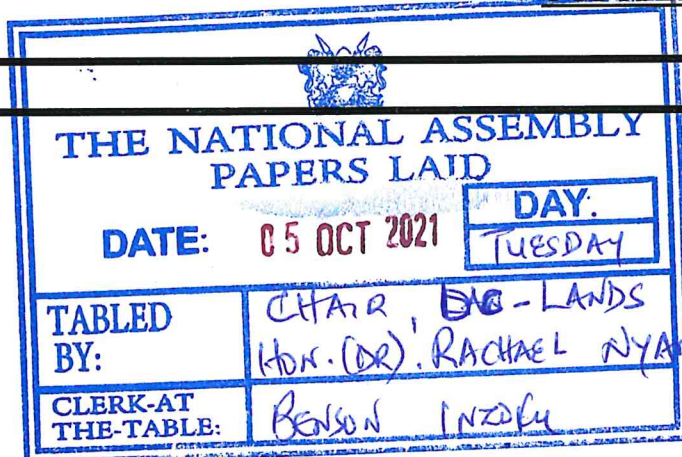 THE NATIONAL ASSEMBLY
PAPERS LAID
DATE: 05 OCT 2021
DAY:
TUESDAY
TABLED BY:
CHAIR, - LANDS
HON. (DR). RACHAEL NYA
CLERK-AT THE-TABLE:
BENSON INZOFU